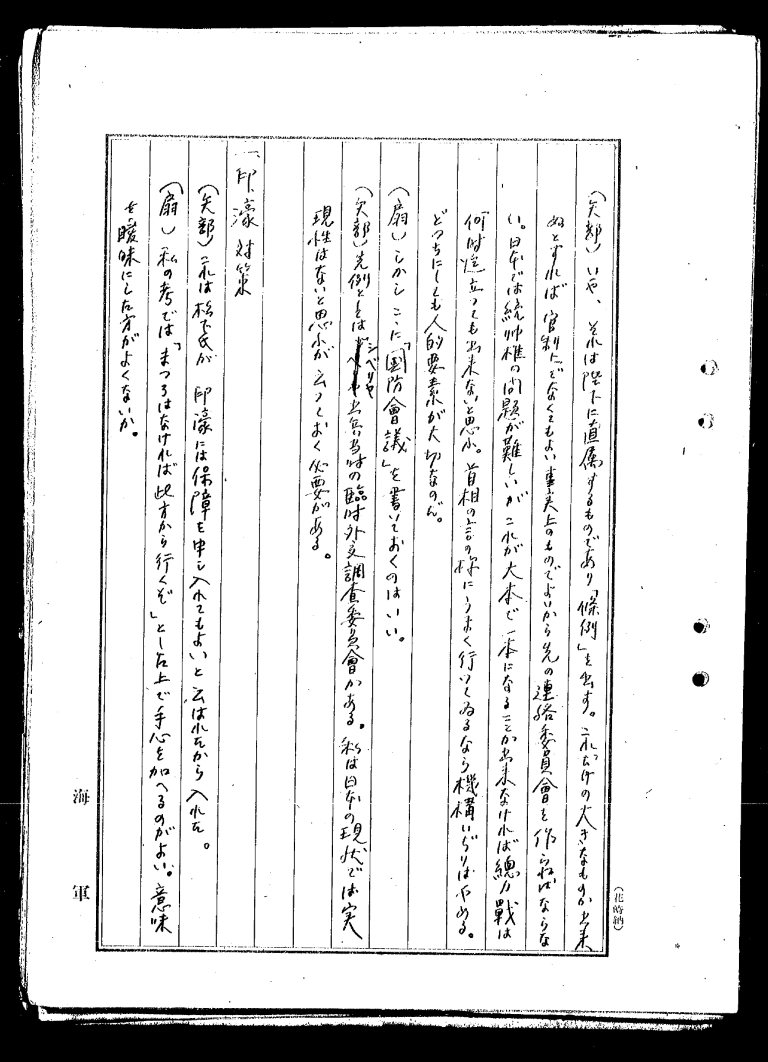 (矢部)いや、それは陛下に直属するものであり「條例」を出す。これだけの大きなものが出来
ぬとすれば官制上でなくてもよい事実上のものでよいから先の連絡委員會を作らねばならな
い。日本では統帥権の問題が難しいがこれが大本で一本になることが出来なければ總力戰は
何時迄立つても出来ないと思ふ。首相の言の様にうまく行つてゐるなら機構いぢりはやめる。
どつちにしても人的要素が大切なのだ。
(扇)しかしこゝに「國防會議」を書いておくのはいい。
(矢部)先例としてはシベリヤ出兵当時の臨時外交調査委員會がある。私は日本の現状では実
現性はないと思ふが云つておく必要がある。
一、印、濠対策
(矢部)これは松下氏が印濠には保障を申し入れてもよいと云はれたから入れた。
(扇)私の考では「まつろはなければ此方から行くぞ」とした上で手心を加へるのがよい。意味
を曖昧にした方がよくないか。
海軍